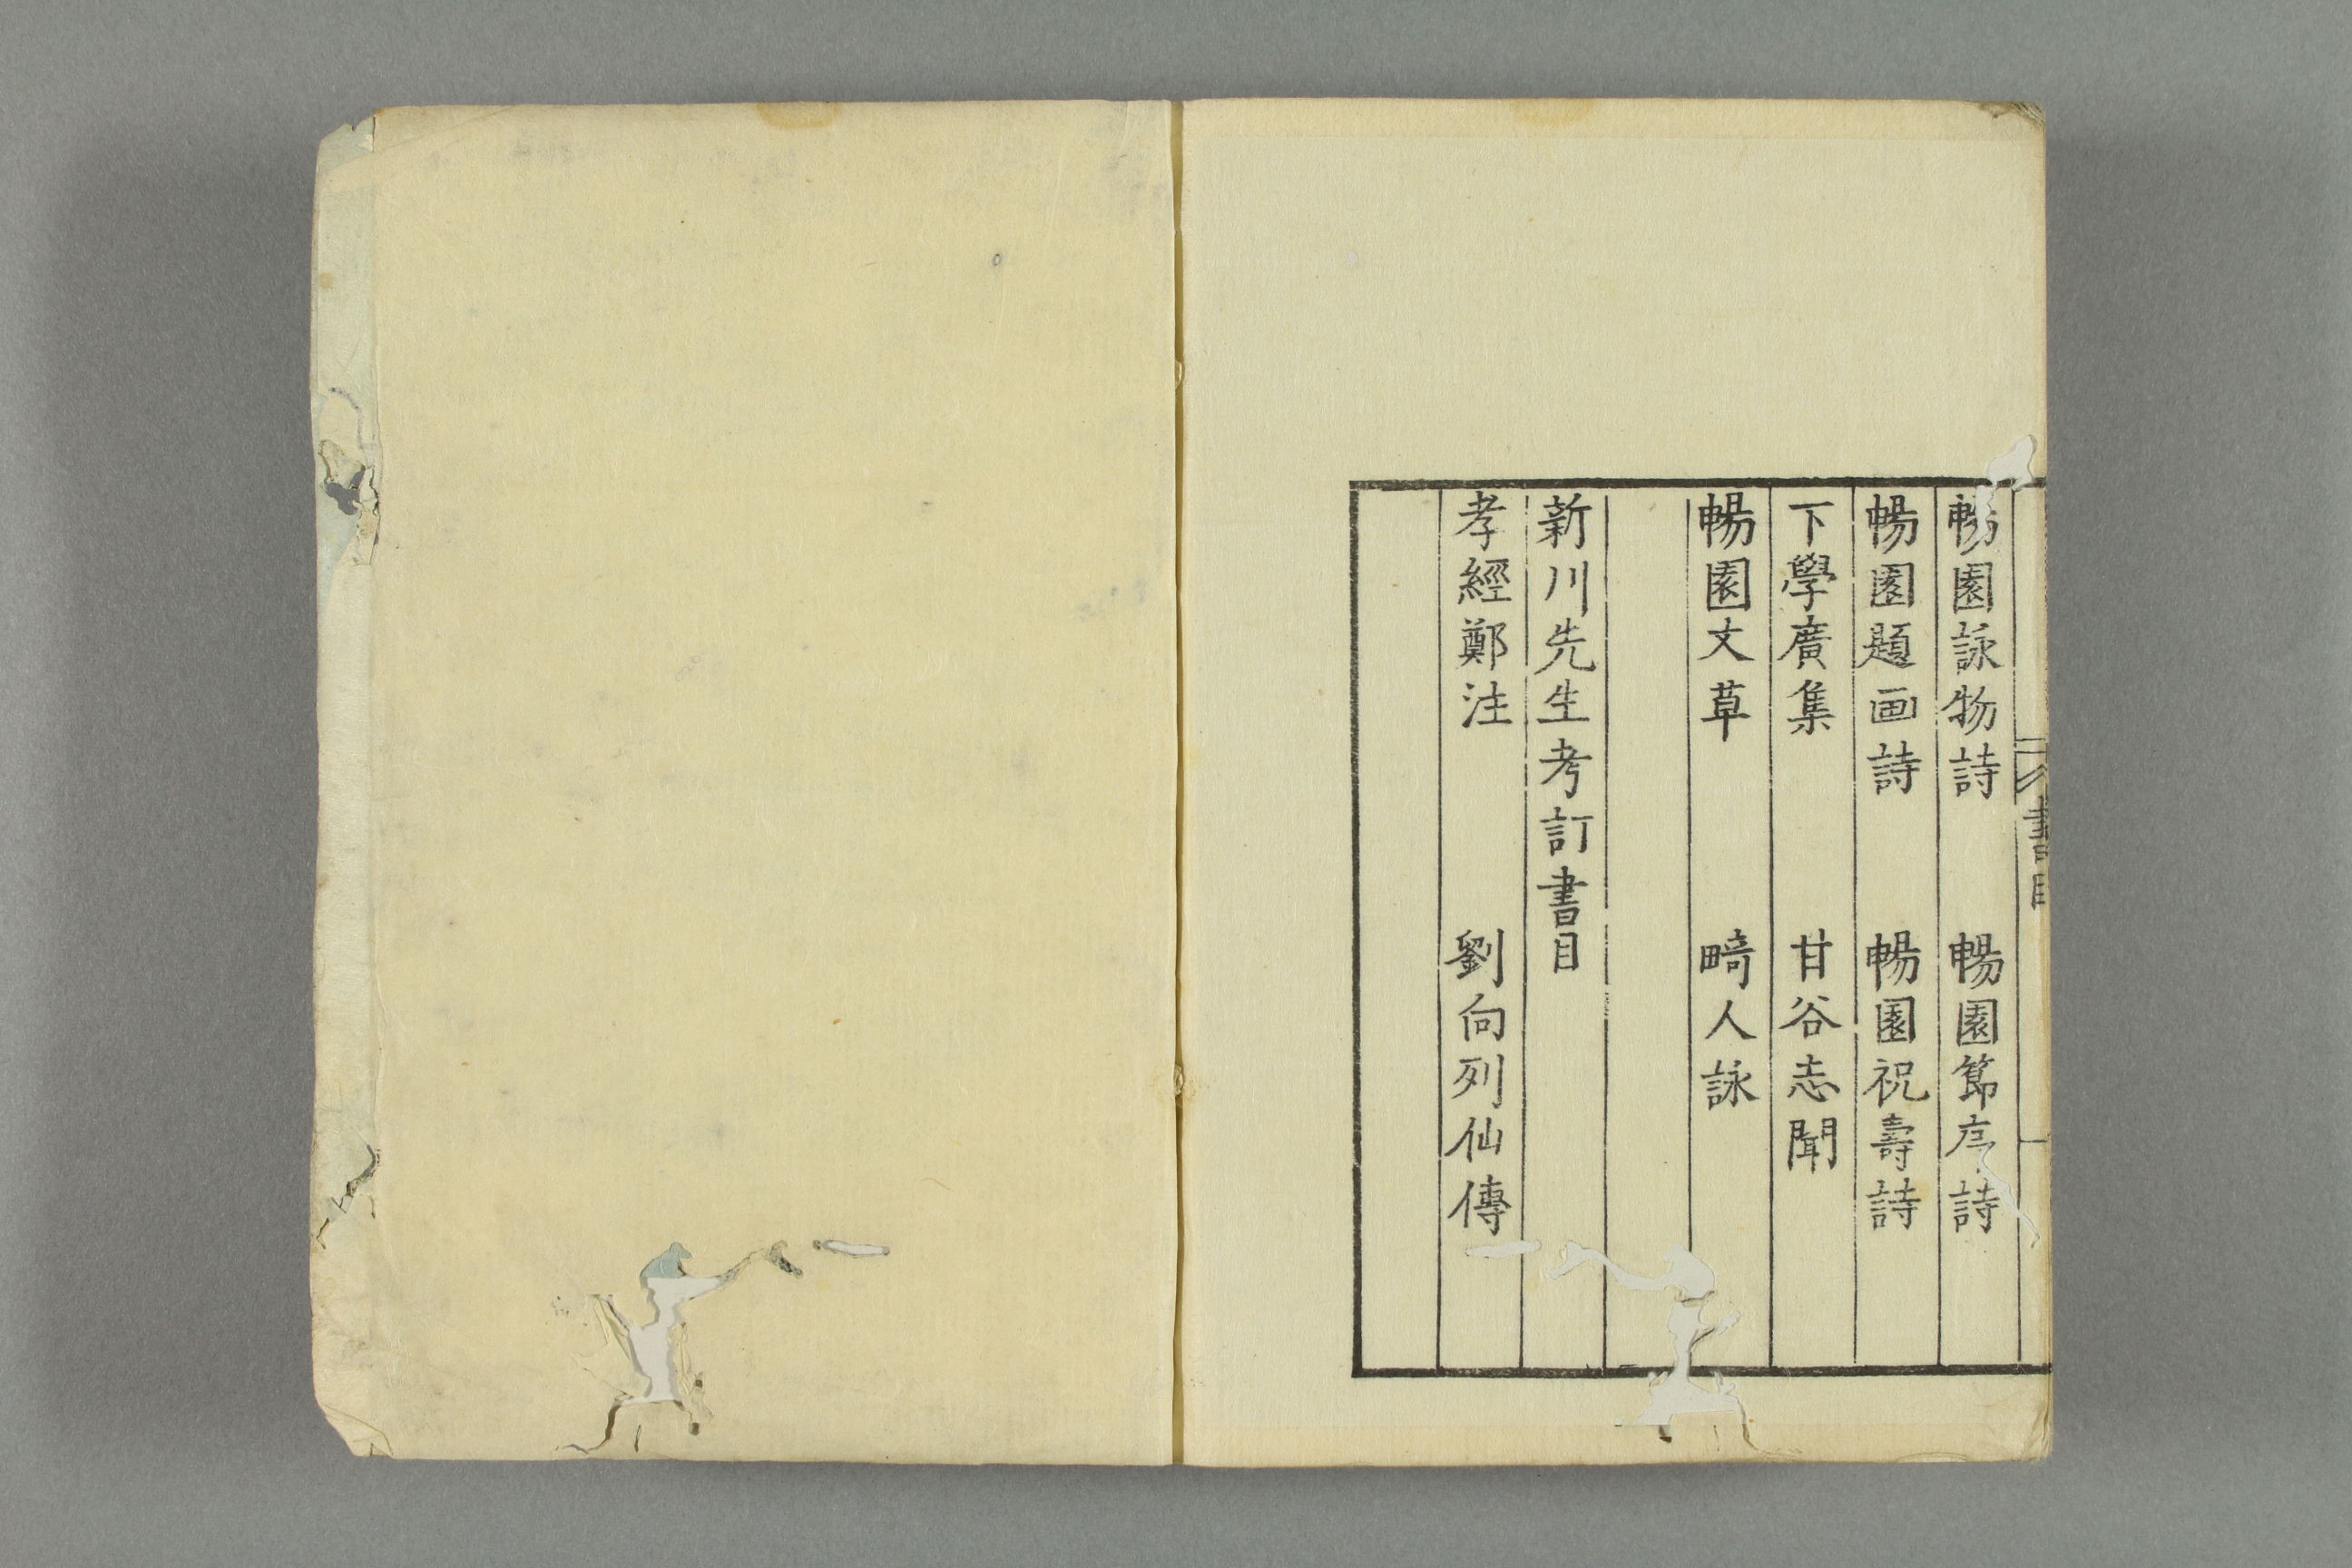 書目
一
暢園詠物詩 暢園節序詩
暢園題画詩 暢園祝壽詩
下學廣集 甘谷志聞
暢園文草 畸人詠
新川先生考訂書目
孝經鄭注 劉向列仙傳